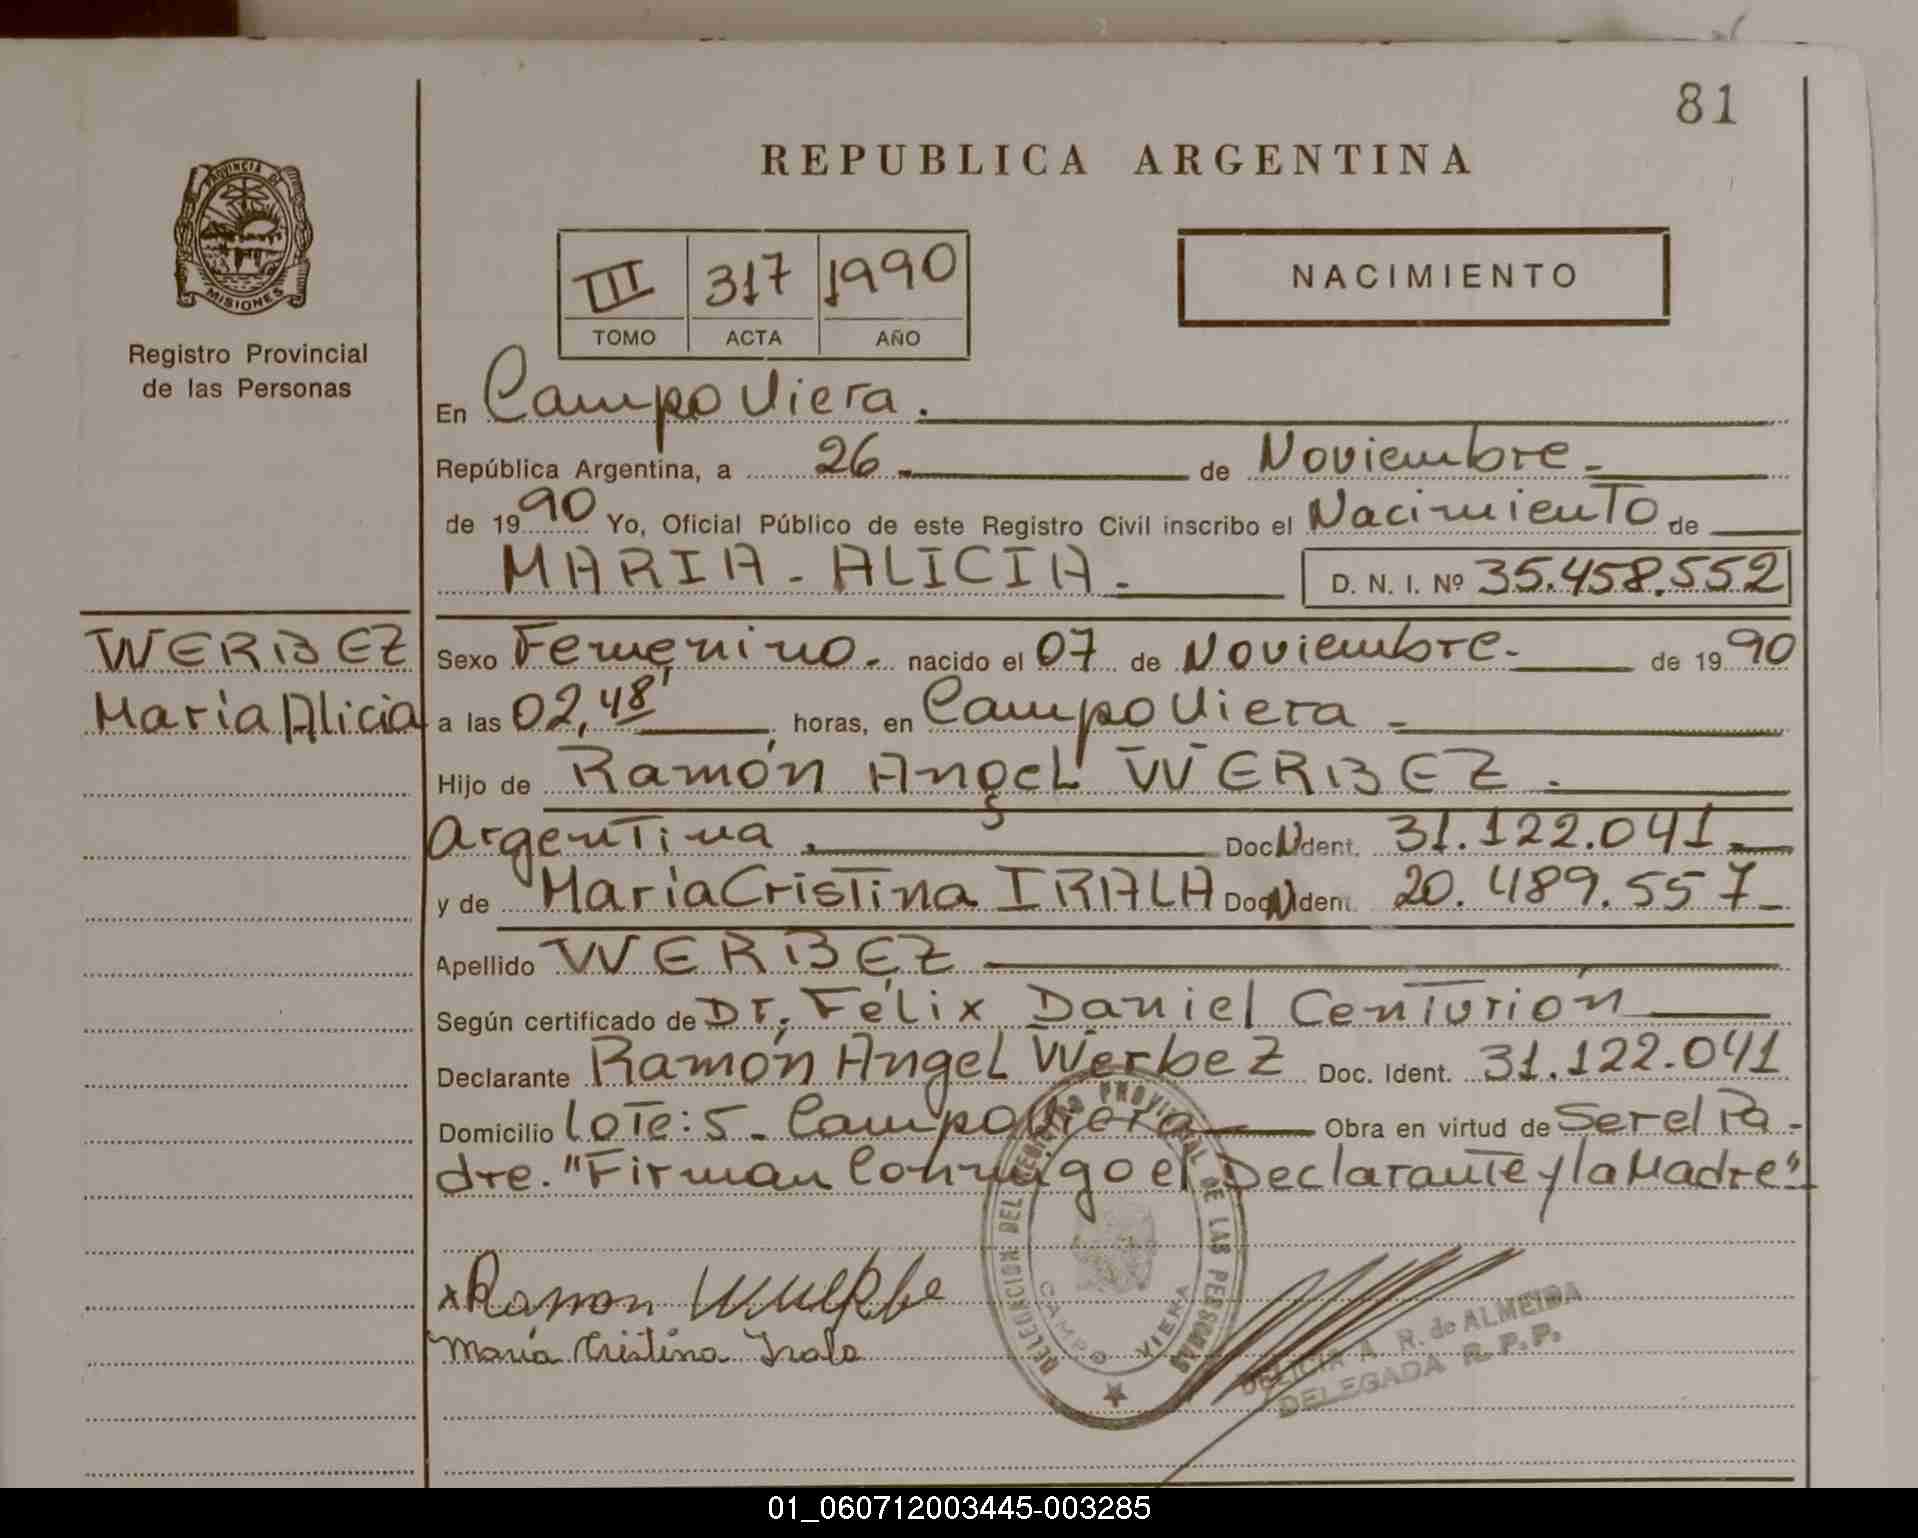 81
REPUBLICA ARGENTINA
PROVINCIA DE
MISIONES
Registro Provincial
de las Personas
III 317 1990
TOMO ACTA AÑO
NACIMIENTO
En Campo Viera.
República Argentina, a 26 de Noviembre
de 1990 Yo, Oficial Público de este Registro Civil inscribo el Nacimiento de
MARIA - ALICIA. D. N. I. Nº 35.458.552
WERBEZ
María Alicia
Sexo Femenino. nacido el 07 de Noviembre. de 1990
a las 02,48' horas, en Campo Viera
Hijo de Ramón Angel WERBEZ.
Argentina. Doc. Ident. 31.122.041
y de María Cristina IRALA Doc. Ident. 20.489.557
Apellido WERBEZ
Según certificado de Dr. Félix Daniel Centurión
Declarante Ramón Angel Werbez Doc. Ident. 31.122.041
Domicilio Lote: 5 - Campo Viera Obra en virtud de Ser el Pa-
dre. "Firman Conmigo el Declarante y la Madre".
x Ramon
María Cristina Irala
DELEGACION DEL REGISTRO PROVINCIAL DE LAS PERSONAS
CAMPO VIERA
A. R. de ALMEIDA
DELEGADA R. P. P.
01_060712003445-003285